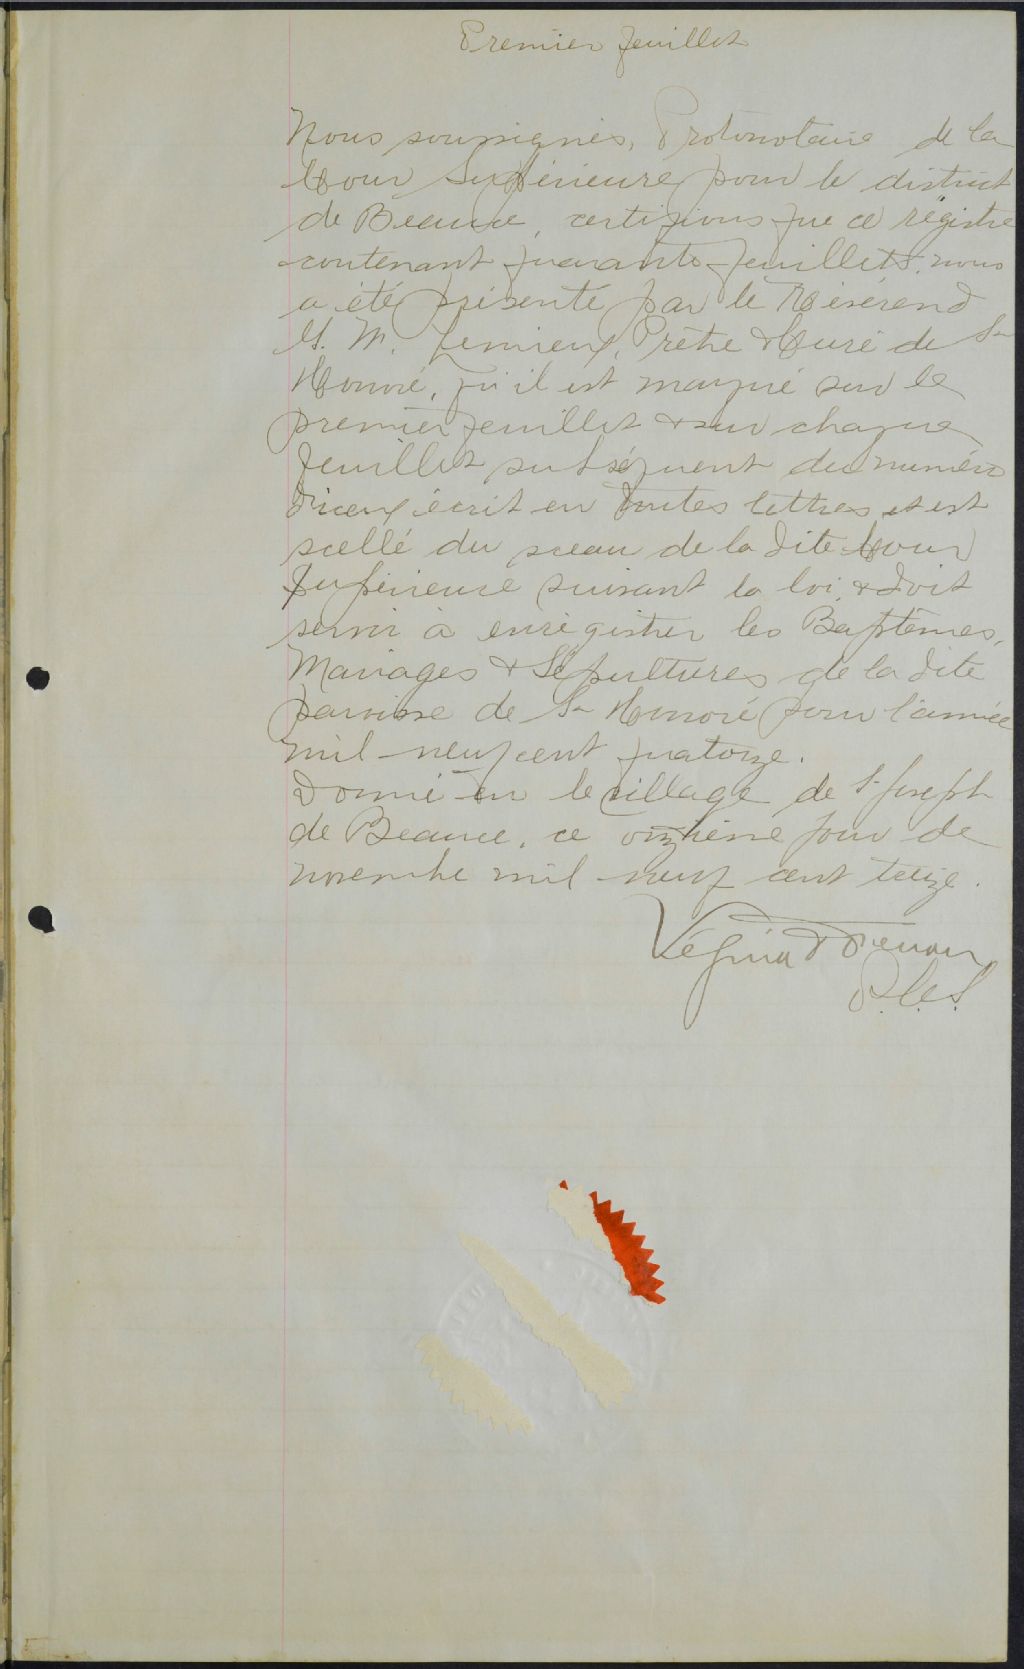 Premier feuillet
Nous soussignés, Protonotaire de la
Cour Supérieure pour le district
de Beauce, certifions que ce régistre
contenant quarante feuillets, nous
a été présenté par le Révérend
M. Lemieux, Prêtre & Curé de St
Honoré, qu'il est marqué sur le
premier feuillet & sur chaque
feuillet subséquent du numéro
d'iceux écrit en toutes lettres et est
scellé du sceau de la dite Cour
Supérieure suivant la loi, & doit
servir à enrégistrer les Baptêmes,
Mariages & Sépultures de la dite
paroisse de St Honoré pour l'année
mil neuf cent quatorze.
Donné en le village de St Joseph
de Beauce, ce onzième jour de
novembre mil neuf cent treize.
Vézina &
P.C.S.